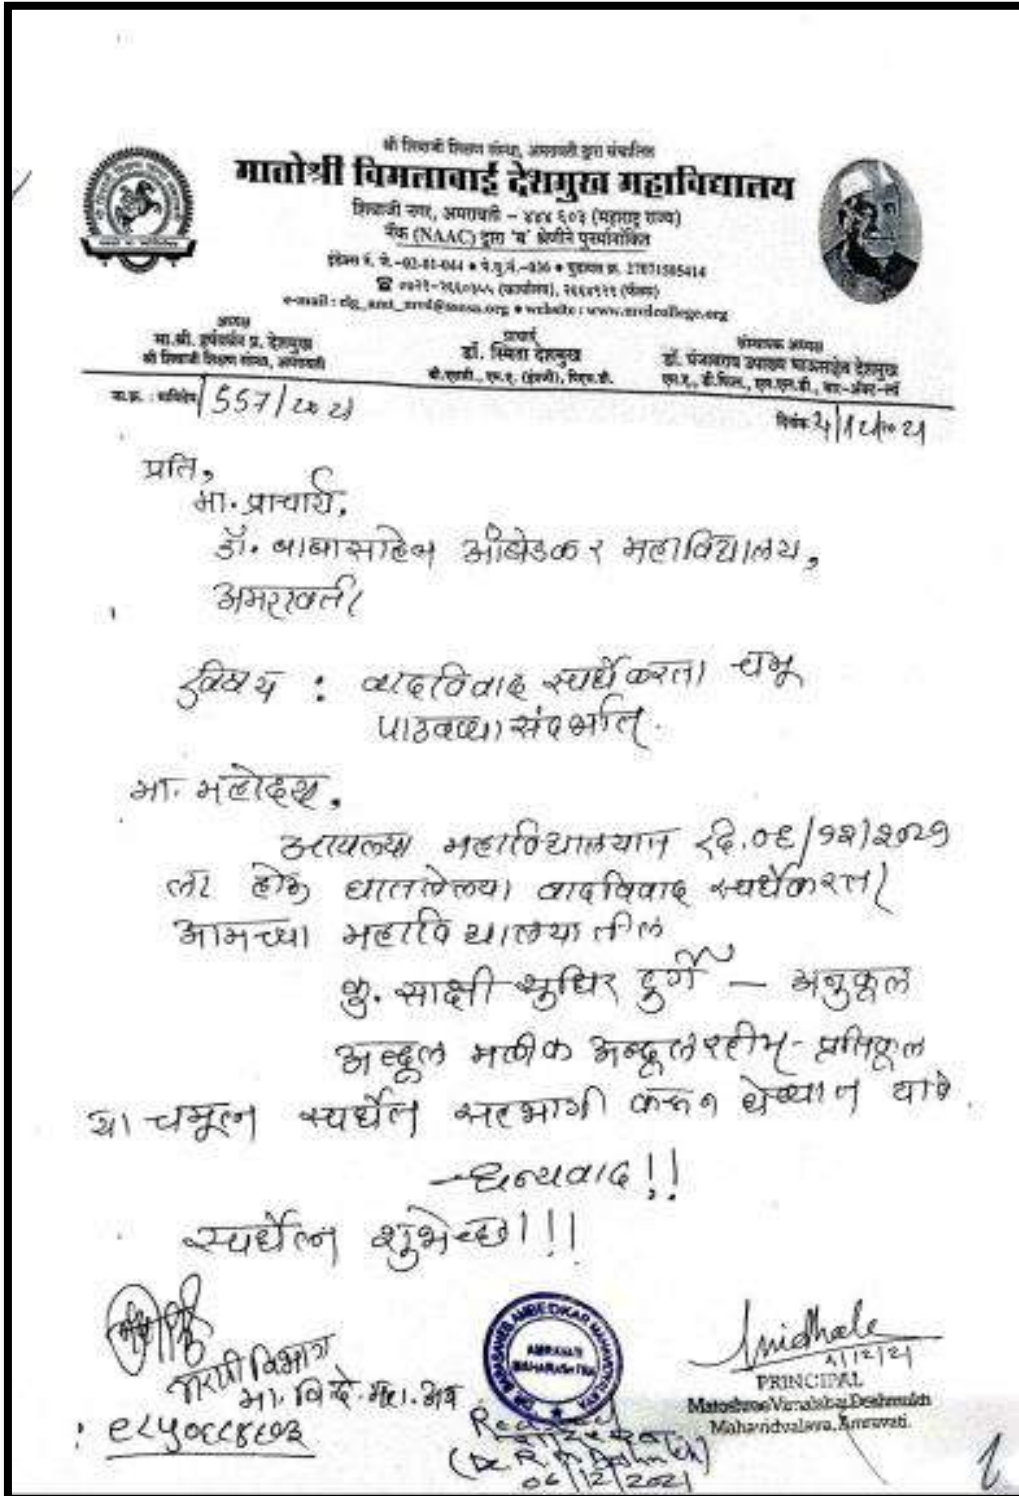 श्री शिवाजी शिक्षण संस्था, अमरावती द्वारा संचालित
मातोश्री विमलाबाई देशमुख महाविद्यालय
शिवाजी नगर, अमरावती – ४४४ ६०३ (महाराष्ट्र राज्य)
नॅक (NAAC) द्वारा 'ब' श्रेणीने पुनर्मानांकित
e-mail : clg_amt_mvd@sssa.org ● website : www.mvdcollege.org
अध्यक्ष
मा.श्री. हर्षवर्धन प्र. देशमुख
श्री शिवाजी शिक्षण संस्था, अमरावती
प्राचार्य
डॉ. स्मिता देशमुख
बी.एससी., एम.ए. (इंग्रजी), पिएच.डी.
संस्थापक अध्यक्ष
डॉ. पंजाबराव उपाख्य भाऊसाहेब देशमुख
एम.ए., डी.फिल., एल.एल.डी., बार-अॅट-लॉ
जा.क्र. : /557/2021
दिनांक
प्रति,
मा. प्राचार्य,
डॉ. बाबासाहेब आंबेडकर महाविद्यालय,
अमरावती
विषय : वादविवाद स्पर्धेकरता चमू
पाठवण्या संदर्भात.
मा. महोदय,
आपल्या महाविद्यालयात दि.०६/१२/२०२१
ला होऊ घातलेल्या वादविवाद स्पर्धेकरता
आमच्या महाविद्यालयातील
कु. साक्षी सुधिर दुर्गे — अनुकूल
अब्दूल मलीक अब्दूल रहीम - प्रतिकूल
या चमूला स्पर्धेत सहभागी करून घेण्यात यावे.
धन्यवाद!!
स्पर्धेला शुभेच्छा!!!
मराठी विभाग
मा. वि. दे. महा. अम
DR. BABASAHEB AMBEDKAR MAHAVIDYALAYA
AMRAVATI
MAHARASHTRA
Received
06/12/2021
4/12/21
PRINCIPAL
Matoshree Vimalabai Deshmukh
Mahavidyalaya, Amravati.